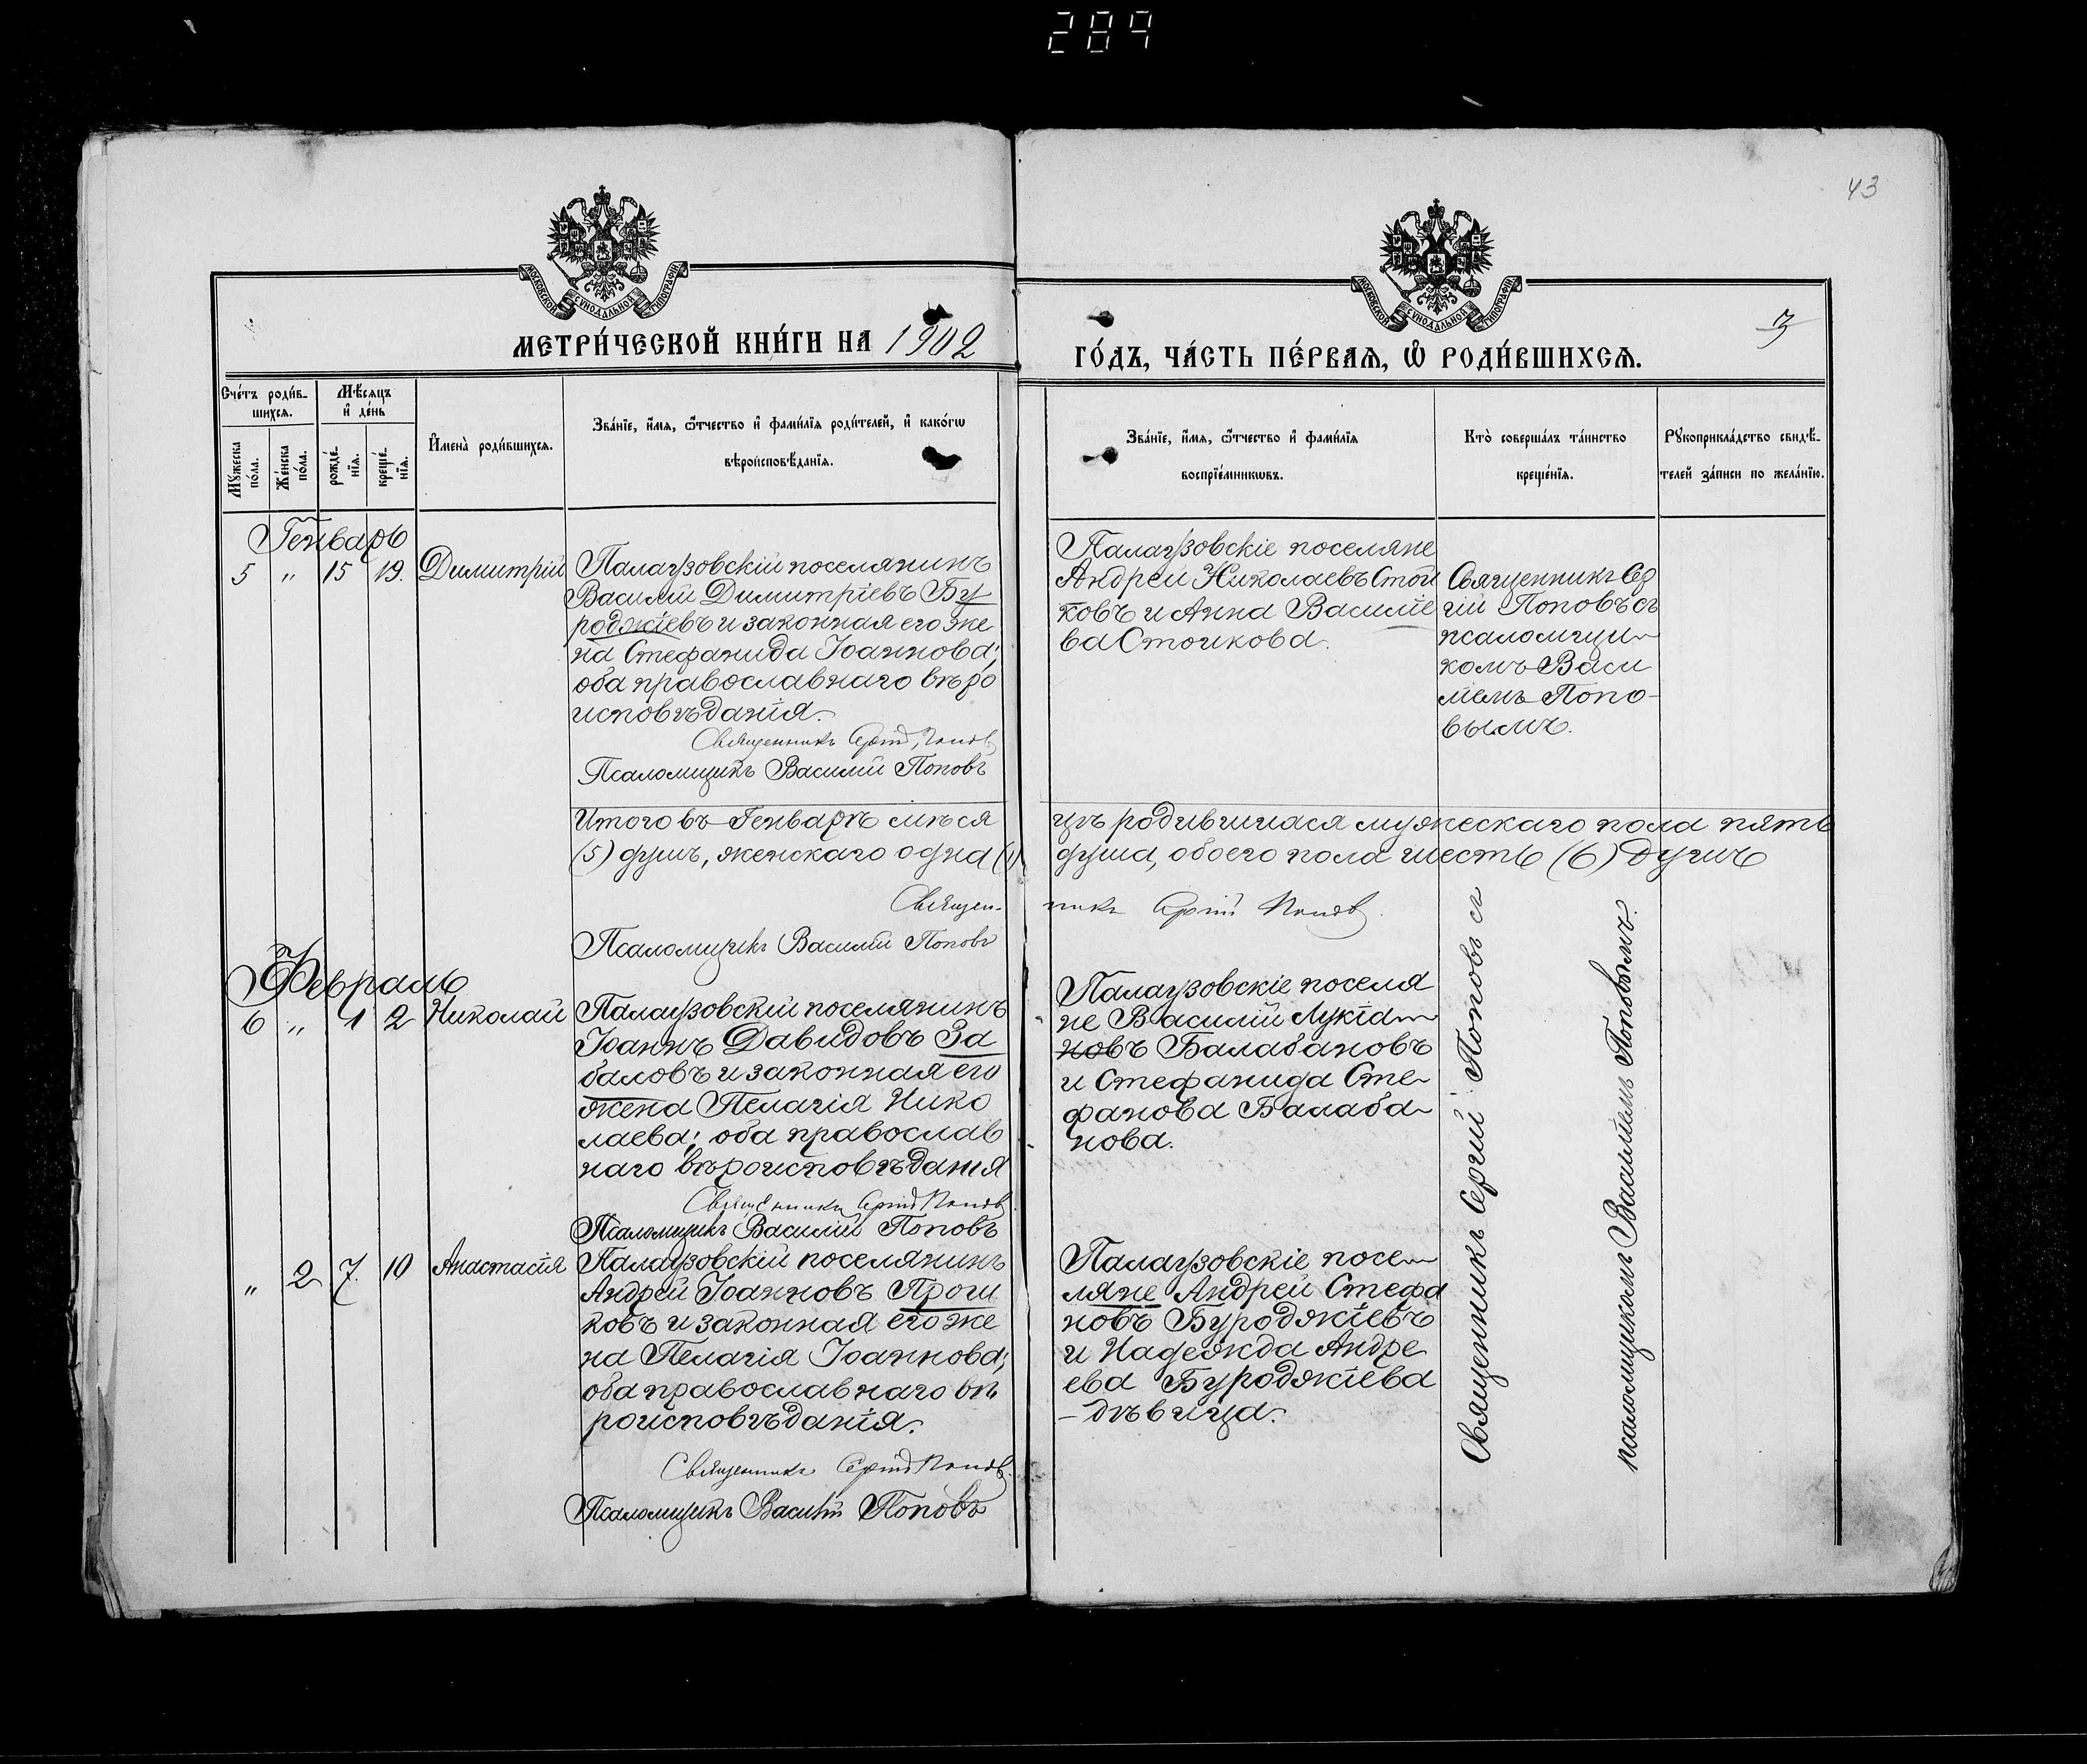 289
43
МОСКОВСКОЙ СѴНОДАЛЬНОЙ ТИПОГРАФІИ
МОСКОВСКОЙ СѴНОДАЛЬНОЙ ТИПОГРАФІИ
МЕТРИ́ЧЕСКОЙ КНИ́ГИ НА 1902
ГО́ДЪ, ЧА́СТЬ ПЕ́РВАѦ, Ѡ҆ РОДИ́ВШИХСѦ.
3
Сче́тъ роди́в-
шихсѧ.
Мѣ́сѧцъ
и҆ де́нь
Мꙋ́жеска
по́ла.
Же́нска
по́ла.
рожде́-
нїѧ.
креще́-
нїѧ.
И҆мена̀ роди́вшихсѧ.
Зва́нїе, и҆́мѧ, ѻ҆́тчество и҆ фами́лїѧ роди́телей, и҆ како́гѡ
вѣроисповѣ́данїѧ.
Зва́нїе, и҆́мѧ, ѻ҆́тчество и҆ фами́лїѧ
воспрїе́мникѡвъ.
Кто̀ соверша́лъ та́инство
креще́нїѧ.
Рꙋкоприкла́дство свидѣ́-
телей за́писи по жела́нїю.
Генварь
5 " 15 19. Димитрій
Палаузовскій поселянинъ
Василій Димитріевъ Бу
роджіевъ и законная его же
на Стефанида Іоаннова;
оба православнаго вѣро
исповѣданія.
Священникъ Сергій Поповъ
Псаломщикъ Василій Поповъ
Палаузовскіе поселяне
Андрей Николаевъ Стои
ковъ и Анна Василіе
ва Стоикова.
Священникъ Сер
гій Поповъ съ
псаломщи-
комъ Васи
ліемъ Попо-
вымъ.
Итого въ Генварѣ мѣся
цѣ родившихся мужескаго пола пять
(5) душъ, женскаго одна (1)
душа, обоего пола шесть (6) душъ
Священ-
никъ Сергій Поповъ
Псаломщикъ Василій Поповъ
Февраль
6 " 1 2 Николай
Палаузовскій поселянинъ
Іоаннъ Давидовъ За
баловъ и законная его
жена Пелагія Нико
лаева; оба православ
наго вѣроисповѣданія
Священникъ Сергій Поповъ
Псаломщикъ Василій Поповъ
Палаузовскіе поселя
не Василій Лукіа-
новъ Балабановъ
и Стефанида Сте-
фанова Балаба-
нова.
" 2 7. 10 Анастасія
Палаузовскій поселянинъ
Андрей Іоанновъ Проши
ковъ и законная его же
на Пелагія Іоаннова;
оба православнаго вѣ
роисповѣданія.
Священникъ Сергій Поповъ
Псаломщикъ Василій Поповъ
Палаузовскіе посе-
ляне Андрей Стефа
новъ Буроджіевъ
и Надежда Андре
ева Буроджіева
- дѣвица.
Священникъ Сергій Поповъ съ
псаломщикомъ Василіемъ Поповымъ.